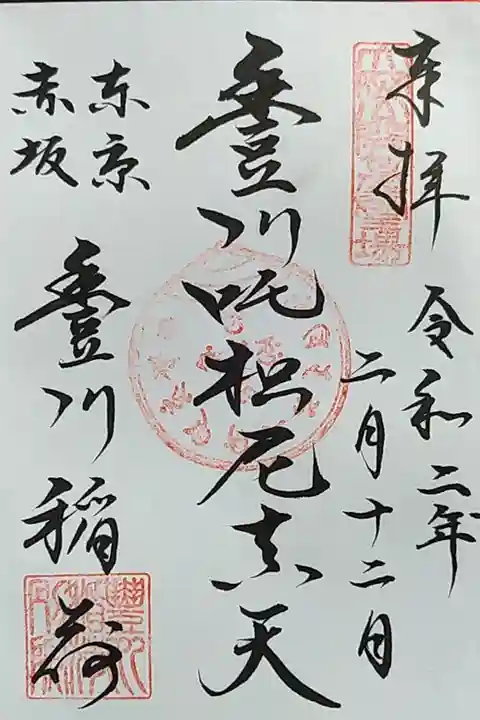 奉拝
令和二年
二月十二日
豊川吒枳尼真天
東京
赤坂
豊川稲荷